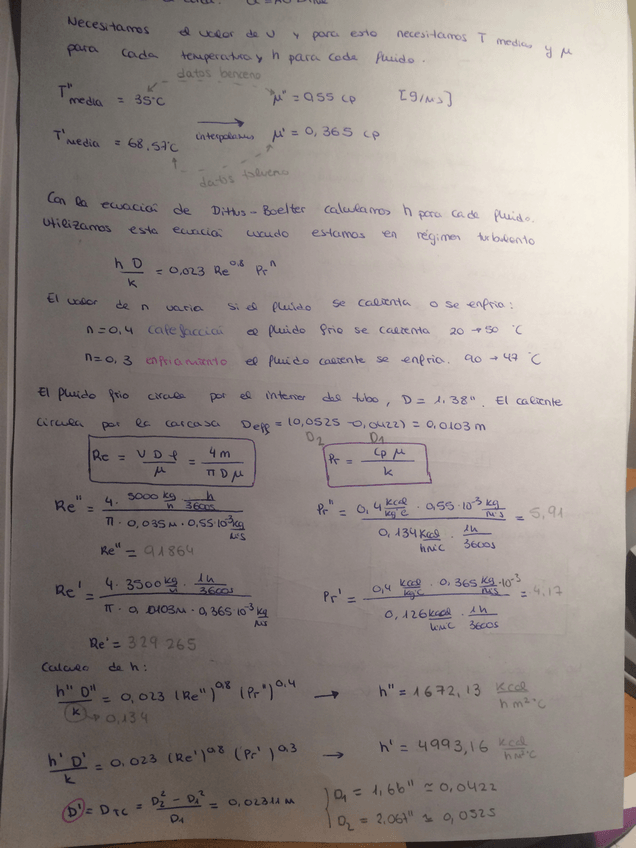 Necesitamos el valor de U y para esto necesitamos T medias y μ
para cada temperatura y h para cada fluido.
datos benceno
T''media = 35°C μ'' = 0,55 cp [g/ms]
T'media = 68,57°C interpolamos μ' = 0,365 cp
datos tolueno
Con la ecuación de Dittus-Boelter calculamos h para cada fluido.
Utilizamos esta ecuación cuando estamos en régimen turbulento
h D / k = 0,023 Re^0,8 Pr^n
El valor de n varia si el fluido se calienta o se enfria:
n=0,4 calefacción el fluido frio se calienta 20 → 50 °C
n=0,3 enfriamiento el fluido caliente se enfria. 90 → 47 °C
El fluido frio circula por el interior del tubo, D = 1,38". El caliente
circula por la carcasa Deff = (0,0525 - 0,0422) = 0,0103 m
D2 D1
Re = V D ρ / μ = 4m / π D μ
Pr = Cp μ / k
Re'' = 4 · 5000 kg/h · h/3600s / π · 0,035 m · 0,55·10^-3 kg/ms
Pr'' = 0,4 kcal/kg°C · 0,55·10^-3 kg/ms / 0,134 kcal/hm°C · 1h/3600s = 5,91
Re'' = 91864
Re' = 4 · 3500 kg/h · 1h/3600s / π · 0,0103 m · 0,365·10^-3 kg/ms
Pr' = 0,4 kcal/kg°C · 0,365 kg/ms · 10^-3 / 0,126 kcal/hm°C · 1h/3600s = 4,17
Re' = 329 265
Calculo de h:
h'' D'' / k = 0,023 (Re'')^0,8 (Pr'')^0,4 → h'' = 1672,13 kcal/hm²°C
→ 0,134
h' D' / k = 0,023 (Re')^0,8 (Pr')^0,3 → h' = 4993,16 kcal/hm²°C
D' = DTC = D2² - D1² / D1 = 0,02311 m
D1 = 1,66" ≃ 0,0422
D2 = 2,067" ≃ 0,0525